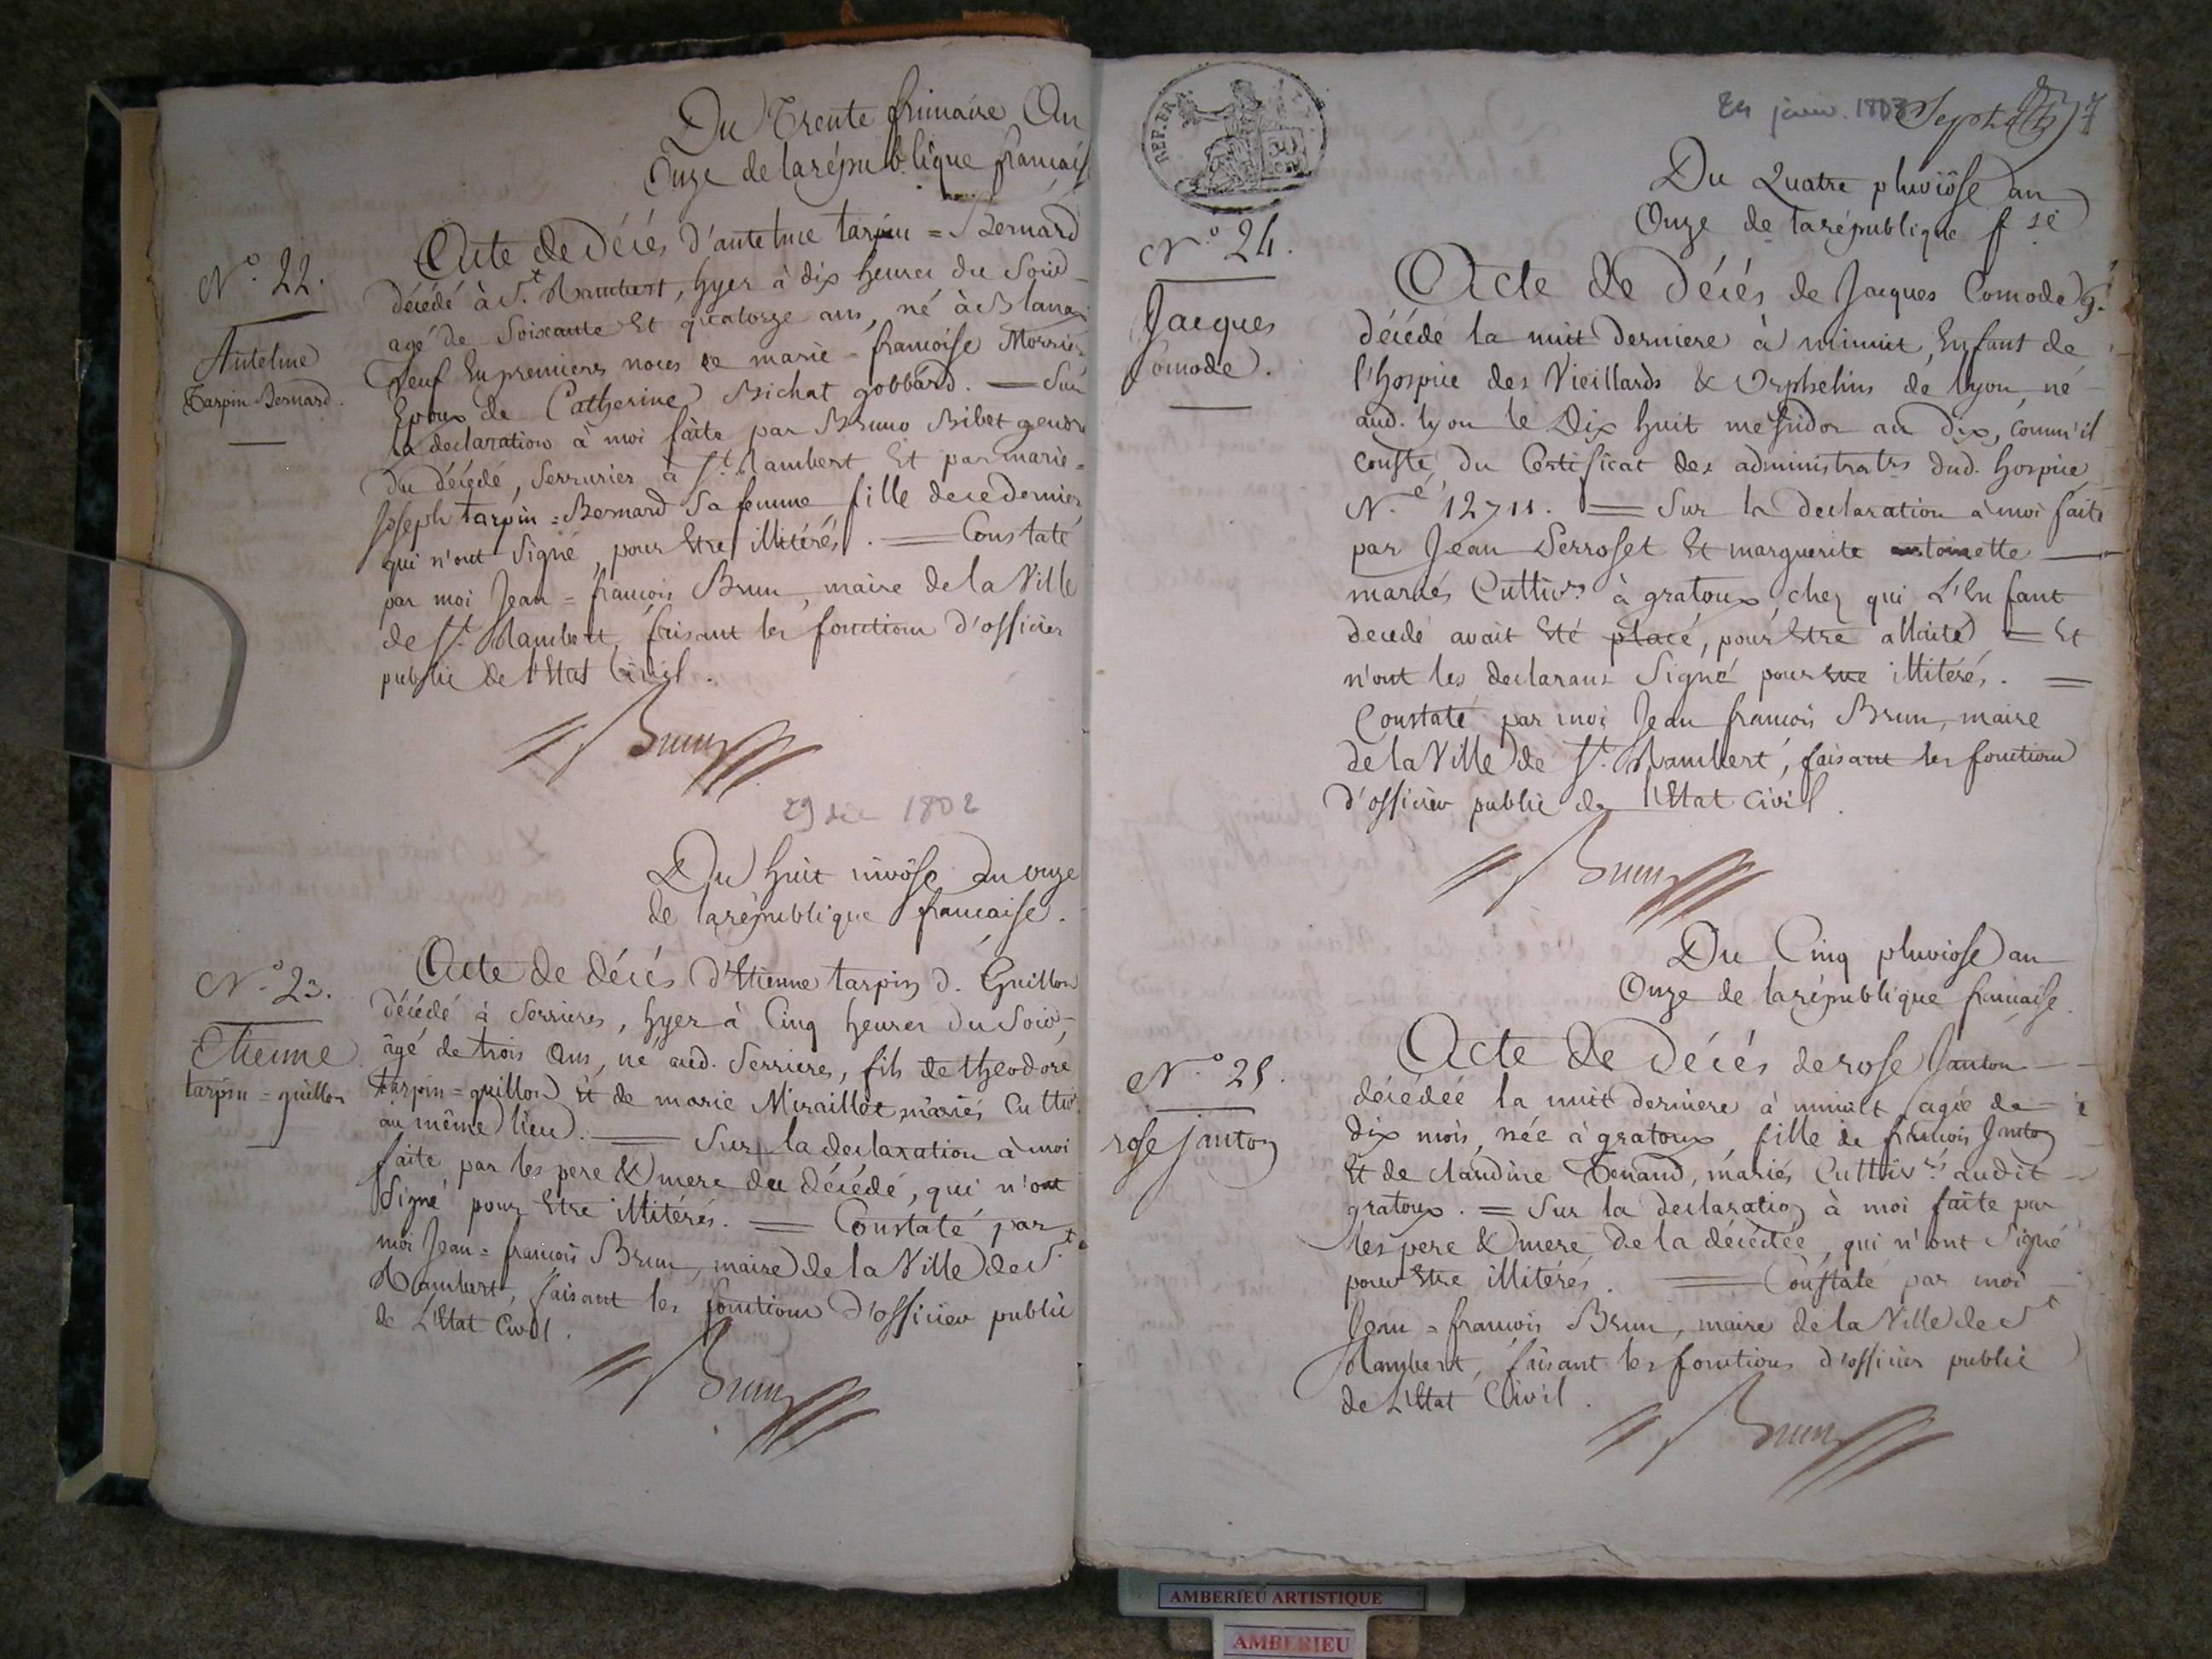 Du Trente frimaire An
Onze de la république française
N.º 22.
Antelme
Tarpin Bernard.
Acte de décés d'antelme tarpin = Bernard
décédé à S.t Rambert, hyer à dix heures du Soir
agé de Soixante Et quatorze ans, né à Blanaz
Veuf En premieres noces de marie = françoise Morrier
Epoux de Catherine Bichat gobbard. — Sur
la declaration à moi faite par Bruno Bibet gendre
du décédé, Serrurier à S.t Rambert Et par marie =
Joseph tarpin = Bernard Sa femme fille de ce dernier
qui n'ont Signé, pour Etre illitérés. — Constaté
par moi Jean = françois Brun, maire de la Ville
de S.t Rambert, faisant les fonctions d'officier
public de l'Etat Civil.
Brun
29 dec 1802
Du huit nivôse an onze
de la république française.
N.º 23.
Etienne
tarpin = guillon
Acte de décés d'Etienne tarpin d. Guillon
décédé à Serrieres, hyer à Cinq heures du Soir,
âgé de trois Ans, né aud. Serrieres, fils de theodore
tarpin = guillon Et de marie Miraillet, mariés Cultiv.rs
au même lieu. — Sur la declaration à moi
faite par les pere & mere du décédé, qui n'ont
Signé pour Etre illitérés. = Constaté par
moi Jean = françois Brun, maire de la Ville de S.t
Rambert, faisant les fonctions d'officier public
de L'Etat Civil.
Brun
REP. FRA.
24 janv. 1803
Sept 7
Du Quatre pluviôse an
Onze de la république f se
N.º 24.
Jacques
Comode.
Acte de Décés de Jacques Comode
décédé la nuit derniere à minuit, Enfant de
l'hospice des Vieillards & Orphelins de lyon, né
aud. lyon le Dix huit messidor an dix, comm'il
conste du Certificat des administratrs dud. hospice
N.e 12711. = Sur la declaration à moi faite
par Jean Perroset Et marguerite antoinette —
mariés Cultiv.rs à gratoux, chez qui L'Enfant
decedé avait Eté placé, pour Etre allaité = Et
n'ont les declarans Signé pour Etre illitérés. =
Constaté par moi Jean françois Brun, maire
de la Ville de S.t Rambert, faisant les fonctions
d'officier public de l'Etat Civil.
Brun
Du Cinq pluviose an
Onze de la république française.
N.º 25.
rose janton
Acte de Décés de rose Janton —
décédée la nuit derniere à minuit agée de
dix mois, née à gratoux, fille de françois Janton
Et de claudine Tenand, mariés Cultiv.rs audit
gratoux. = Sur la declaration à moi faite par
les pere & mere de la décédée, qui n'ont Signé
pour Etre illitérés. = Constaté par moi
Jean = françois Brun, maire de la Ville de S.t
Rambert, faisant les fonctions d'officier public
de L'Etat Civil.
Brun
AMBERIEU ARTISTIQUE
AMBERIEU